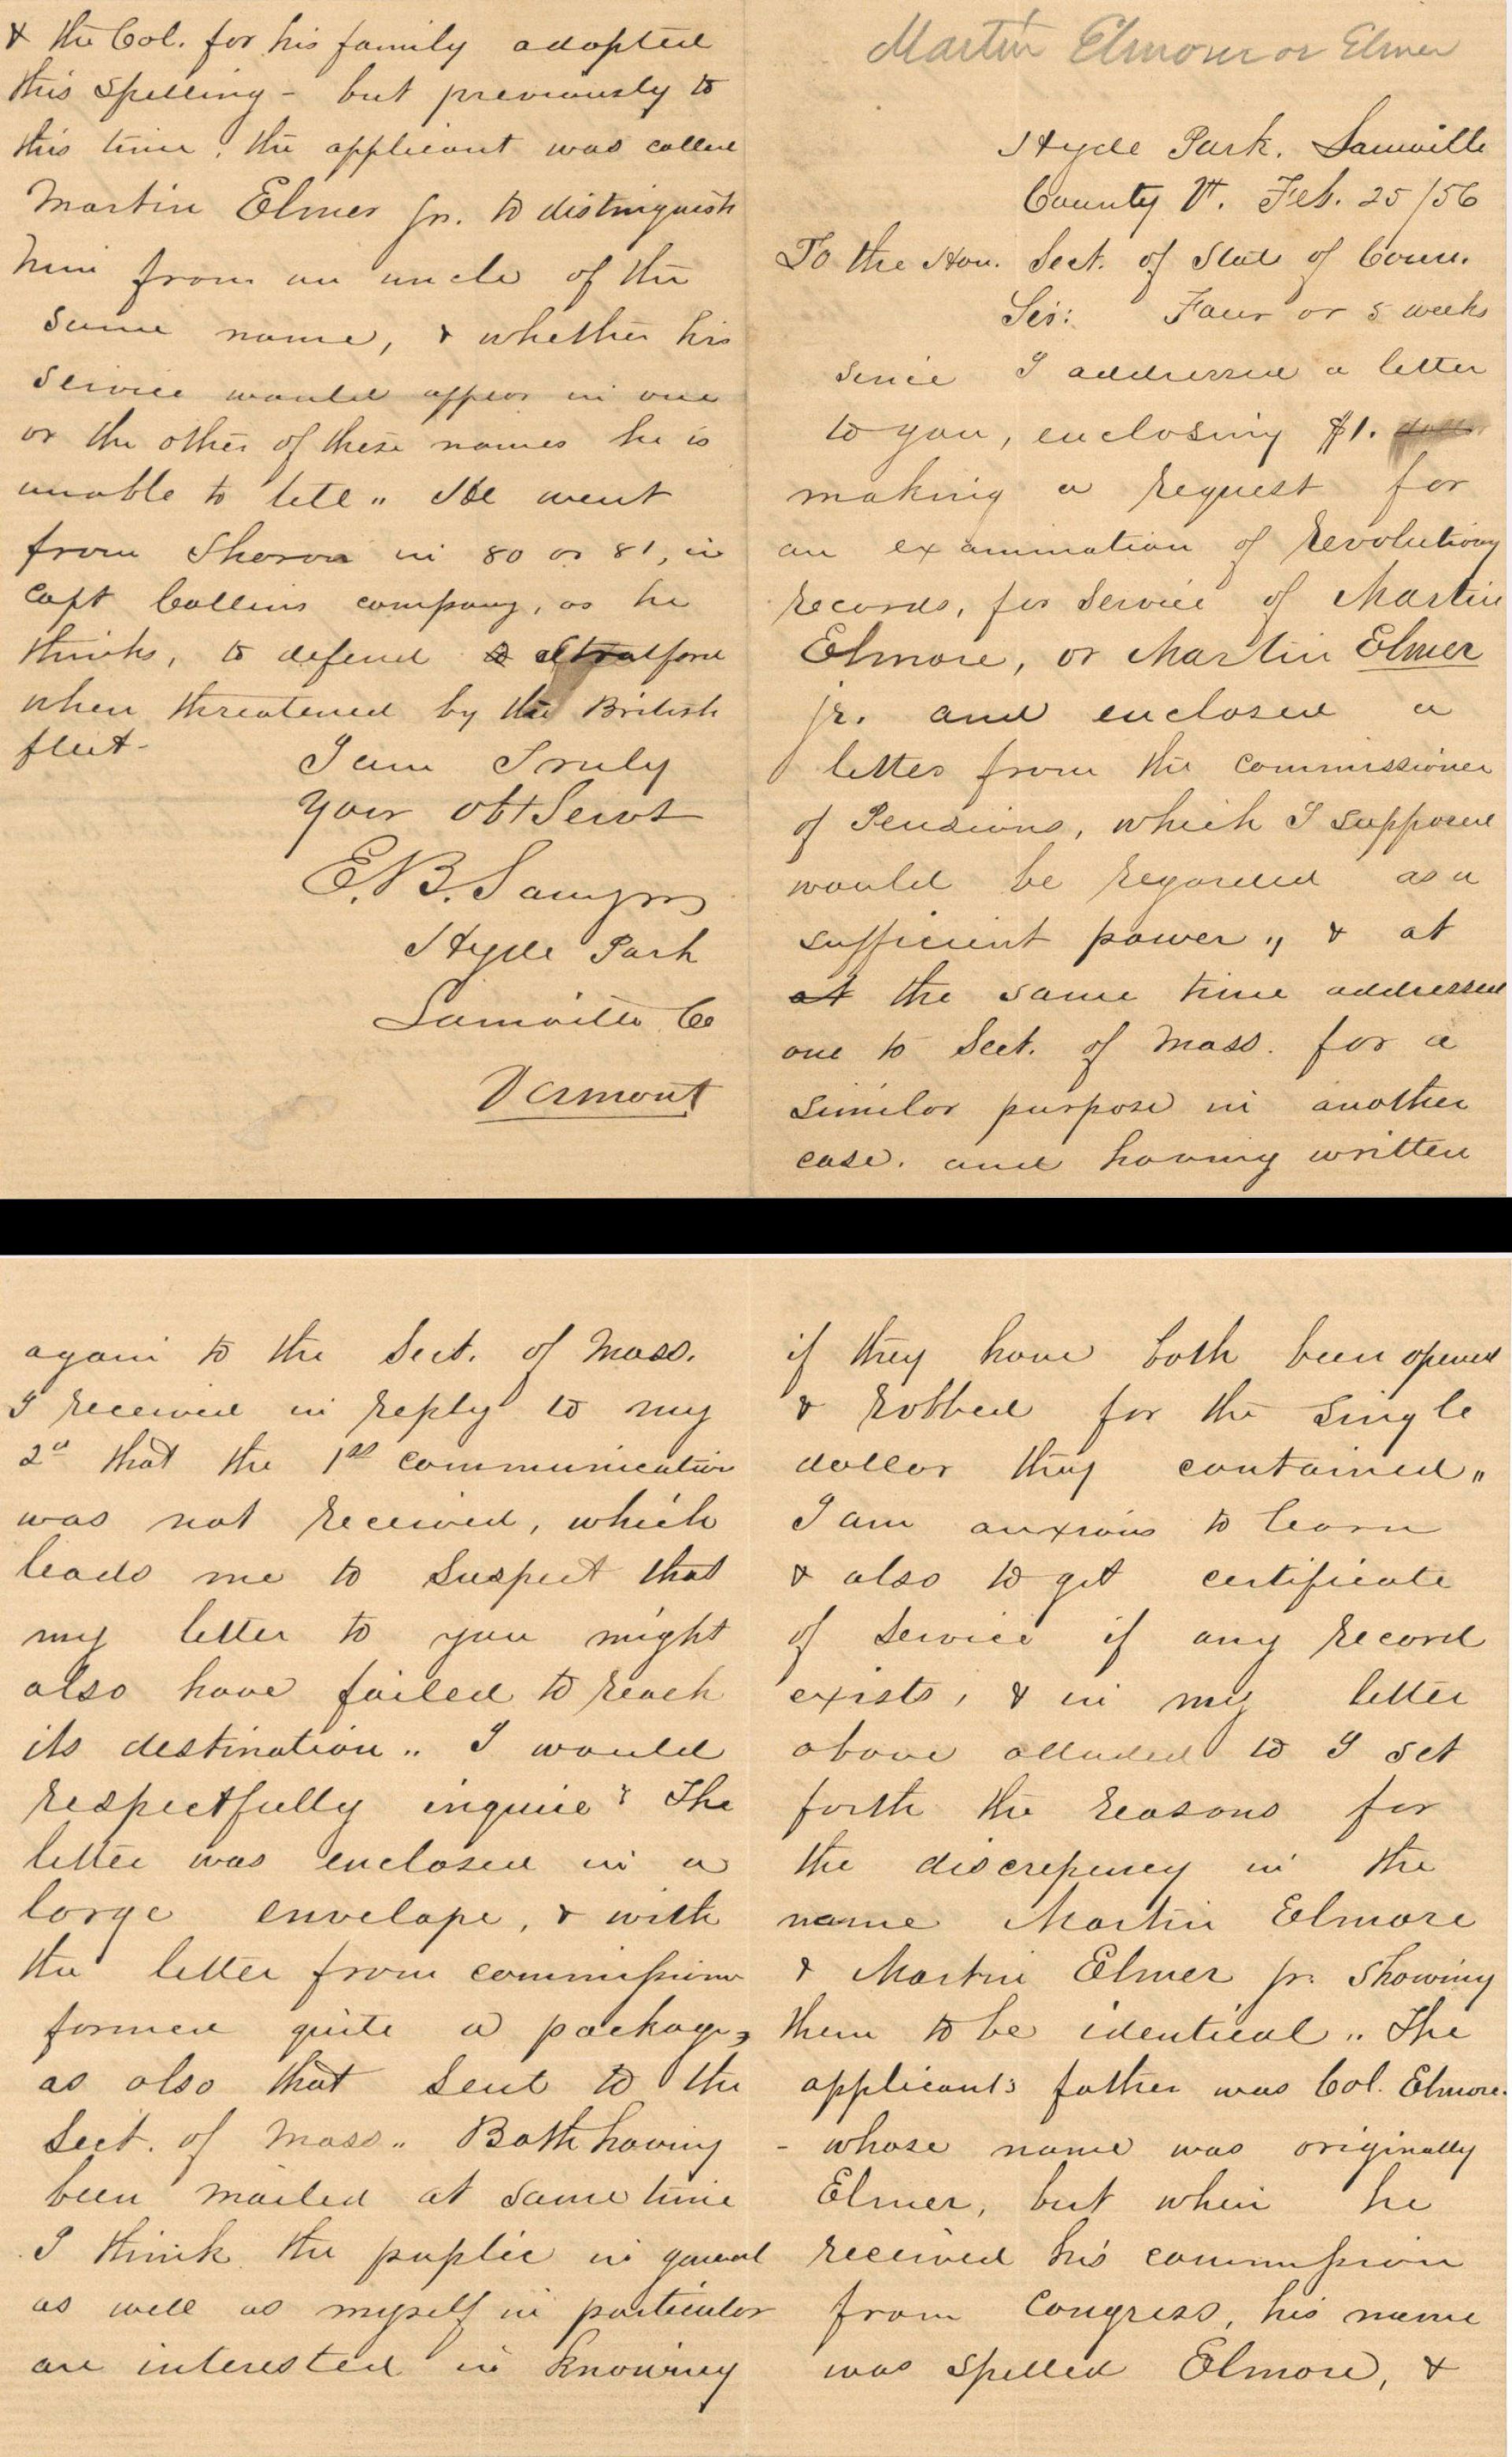 Martin Elmore or Elmer
Hyde Park. Lamoille
County Vt. Feb. 25/56
To the Hon. Sect. of State of Conn.
Sir: Four or 5 weeks
since I addressed a letter
to you, enclosing $1.
making a request for
an examination of Revolutionary
records, for service of Martin
Elmore, or Martin Elmer
jr. and enclosed a
letter from the commissioner
of Pensions, which I supposed
would be regarded as a
sufficient power,, & at
at the same time addressed
one to Sect. of Mass. for a
similar purpose in another
case. and having written
again to the Sect. of Mass.
I received in reply to my
2d that the 1st communication
was not received, which
leads me to suspect that
my letter to you might
also have failed to reach
its destination.. I would
respectfully inquire? The
letter was enclosed in a
large envelope, & with
the letter from commissioner
formed quite a package,
as also that sent to the
Sect. of Mass.. Both having
been mailed at same time
I think the puplic in general
as well as myself in particular
are interested in knowing
if they have both been opened
& robbed for the single
dollar they contained,,
I am anxious to learn
& also to get certificate
of service if any record
exists, & in my letter
above alluded to I set
forth the reasons for
the discrepency in the
name Martin Elmore
& Martin Elmer jr. showing
them to be identical.. The
applicants father was Col. Elmore.
- whose name was originally
Elmer, but when he
received his commission
from Congress, his name
was spelled Elmore, &
& the Col. for his family adopted
this spelling - but previously to
this time, the applicant was called
Martin Elmer jr. to distinguish
him from an uncle of the
same name, & whether his
service would appear in one
or the other of these names he is
unable to tell.. He went
from Sharon in 80 or 81, in
Capt Collins company, as he
thinks, to defend Stratford
when threatened by the British
fleet-
I am Truly
your obt Servt
E.B. Sawyer
Hyde Park
Lamoille Co
Vermont